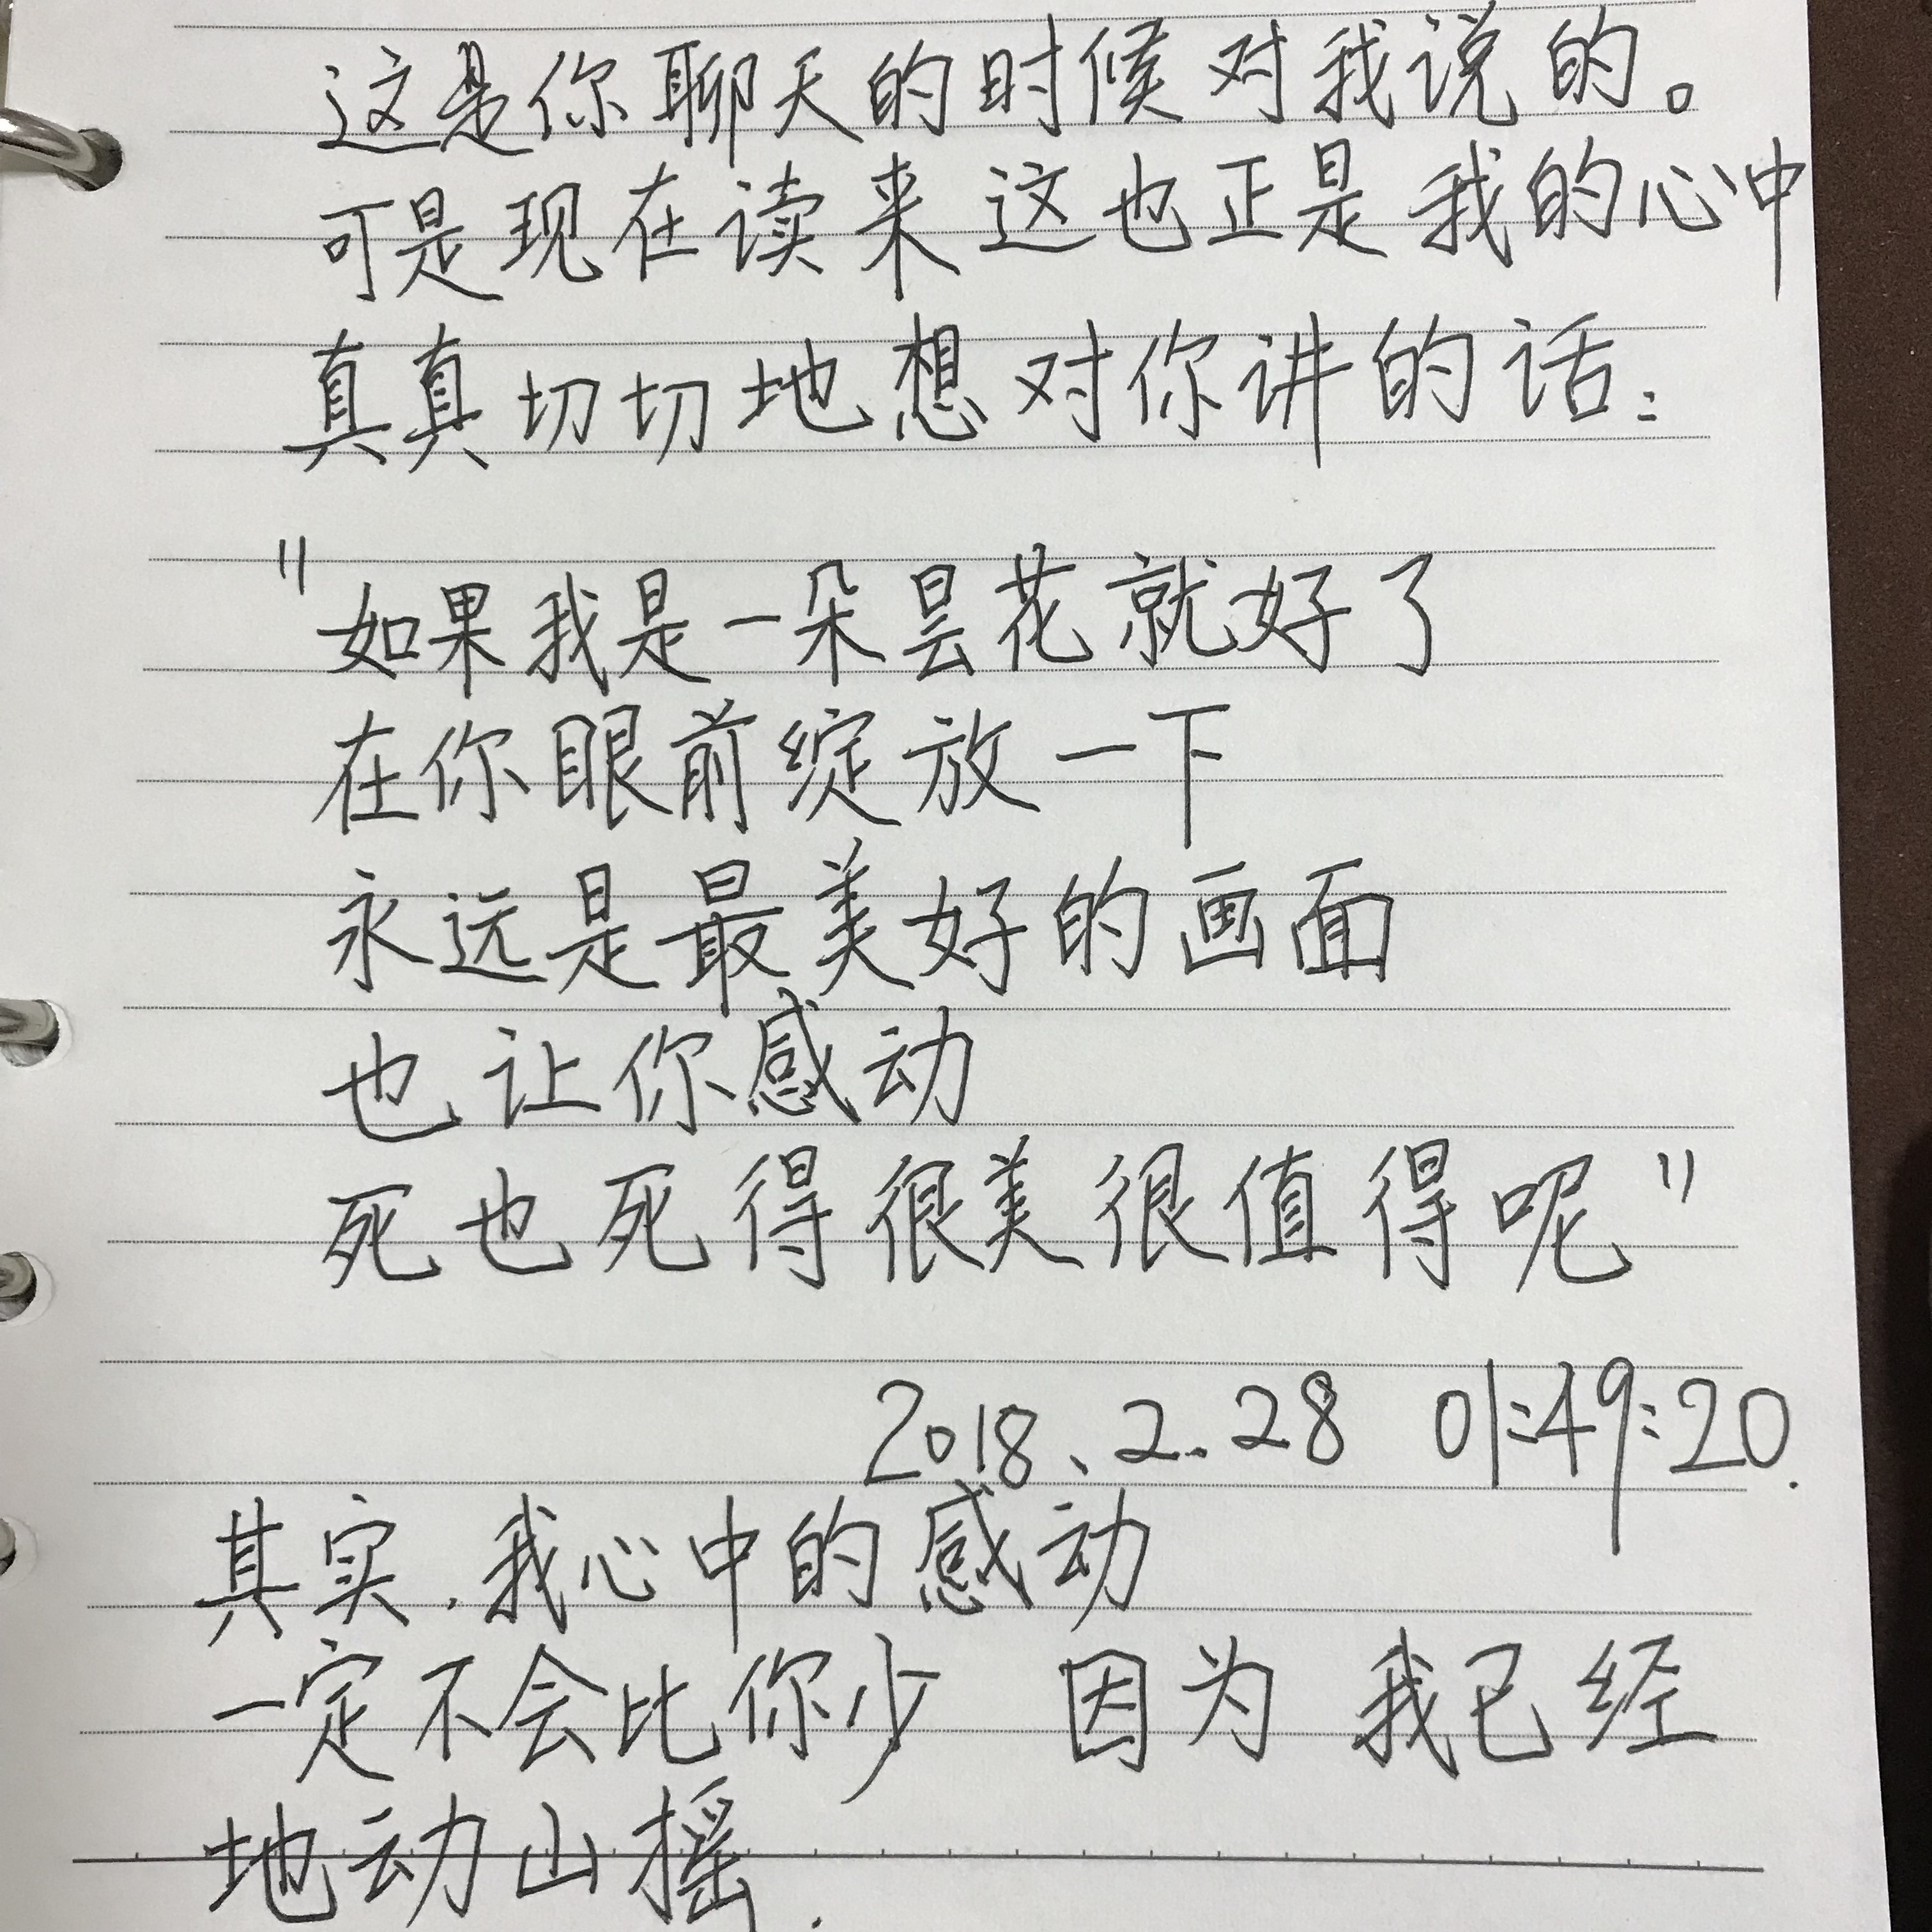 这是你聊天的时候对我说的。
可是现在读来这也正是我的心中
真真切切地想对你讲的话:
"如果我是一朵昙花就好了
在你眼前绽放一下
永远是最美好的画面
也让你感动
死也死得很美很值得呢"
2018、2.28 01:49:20.
其实.我心中的感动
一定不会比你少 因为 我已经
地动山摇.